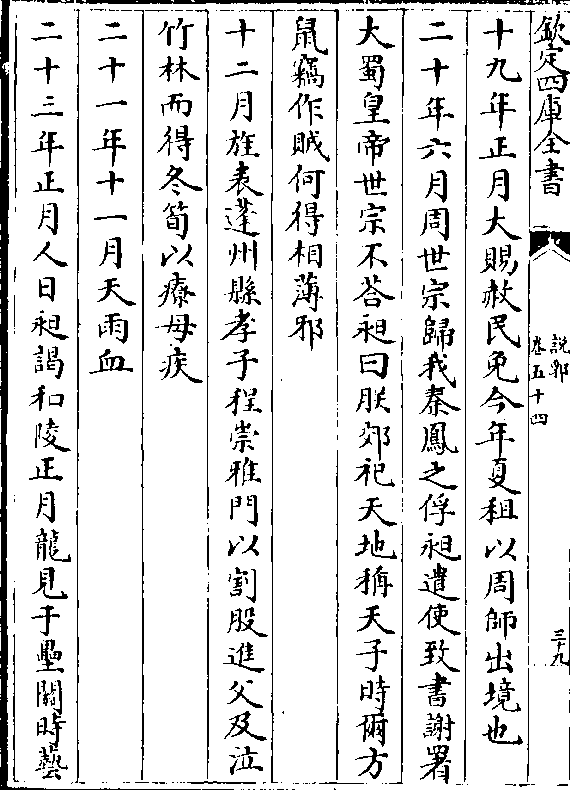 欽定四庫全書
說郛
卷五十四
三十九
十九年正月大賜赦民免今年夏租以周師出境也
二十年六月周世宗歸我秦鳳之俘昶遣使致書謝署
大蜀皇帝世宗不荅昶曰朕郊祀天地稱天子時爾方
鼠竊作賊何得相薄邪
十二月旌表蓬州縣孝子程崇雅門以割股進父及泣
竹林而得冬筍以療母疾
二十一年十一月天雨血
二十三年正月人日昶謁和陵正月龍見于壘關時藝